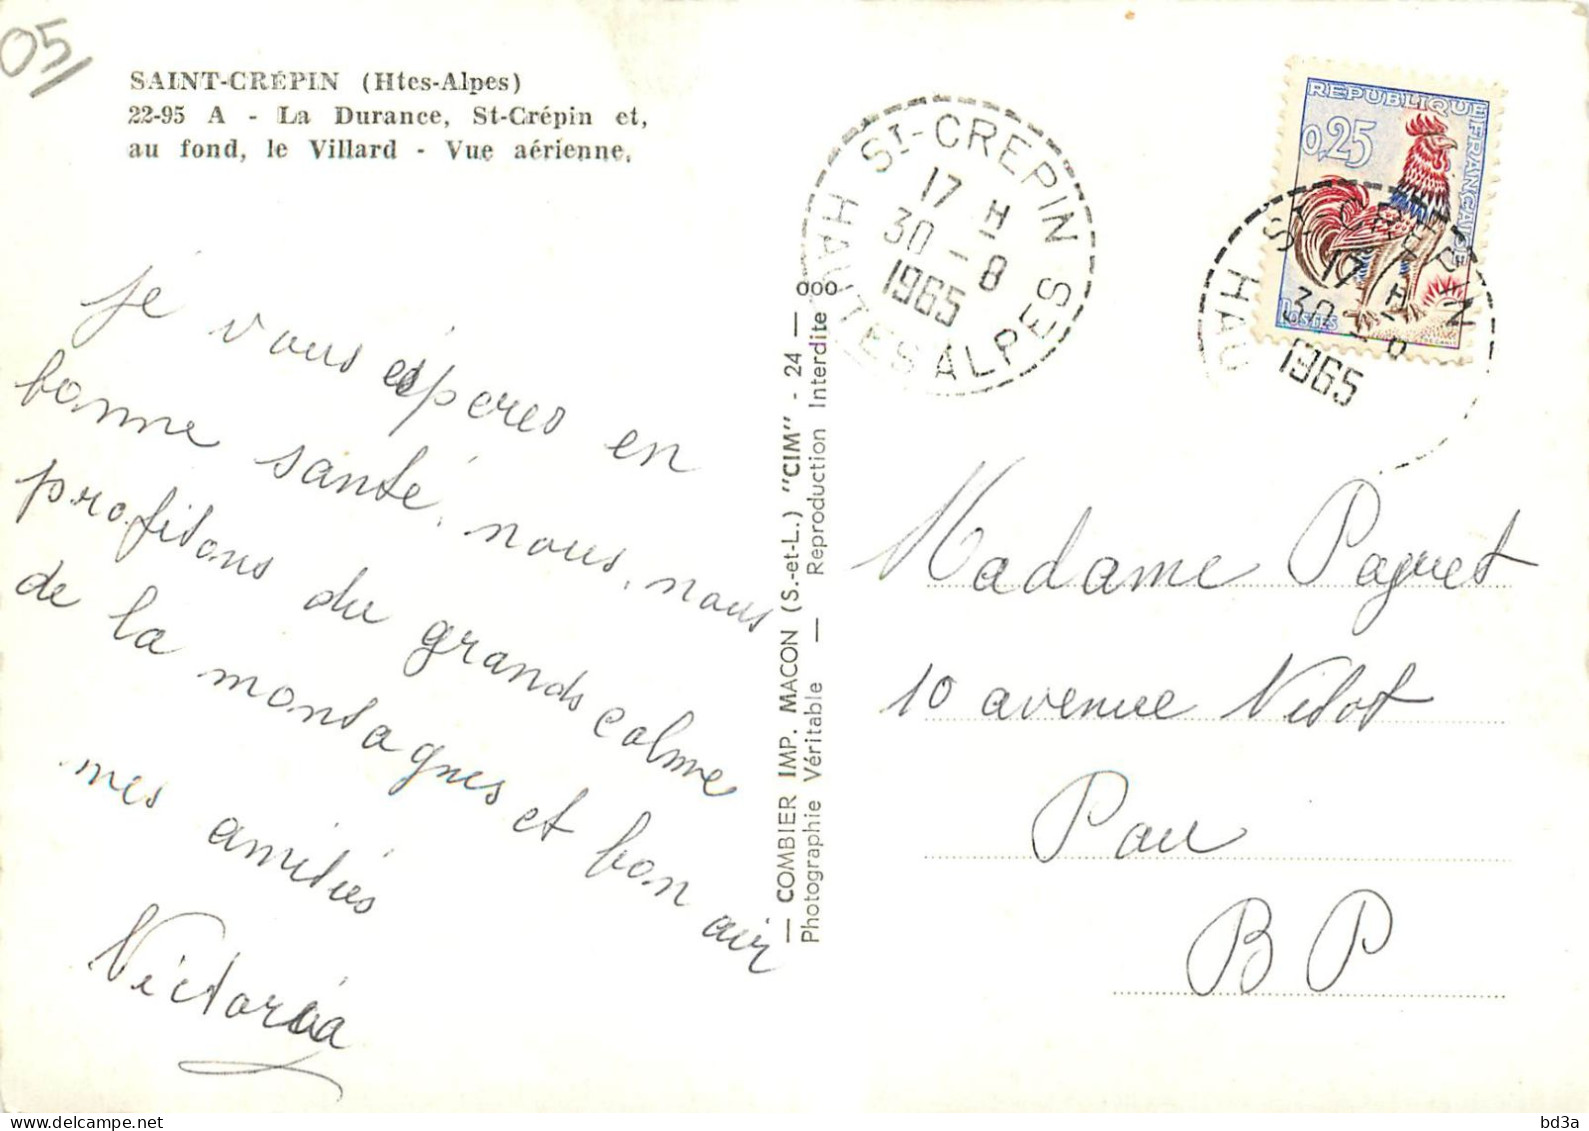 05/
SAINT-CRÉPIN (Htes-Alpes)
22-95 A - La Durance, St-Crépin et,
au fond, le Villard - Vue aérienne.
je vous espères en
bonne santé, nous, nous
profitons du grands calme
de la montagnes et bon air
mes amitiés
Victoria
— COMBIER IMP. MACON (S.-et-L.) "CIM" - 24 —
Photographie Véritable — Reproduction Interdite
ST-CREPIN
17 H
30 - 8
1965
HAUTES ALPES
REPUBLIQUE FRANÇAISE
0,25
POSTES
ST-CREPIN
17 H
30 - 8
1965
HAU
Madame Paquet
10 avenue Nitot
Pau
BP
bd3a